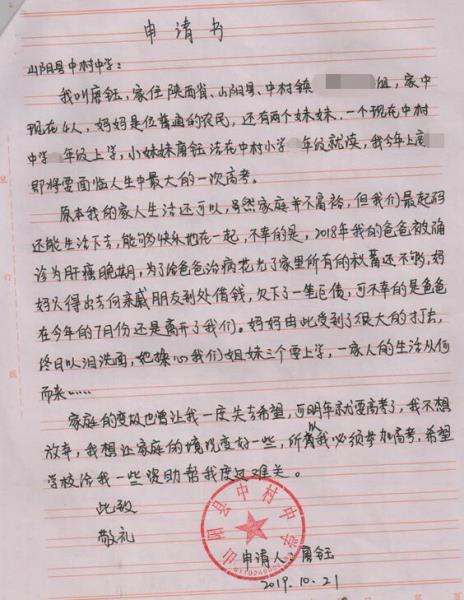 申请书
山阳县中村中学：
我叫唐钰，家住陕西省、山阳县、中村镇 组，家中
现在4人，妈妈是位普通的农民，还有两个妹妹，一个现在中村
中学 年级上学，小妹妹唐钰洁在中村小学 年级就读，我今年上高
即将要面临人生中最大的一次高考。
原本我的家人生活还可以，虽然家庭并不富裕，但我们最起码
还能生活下去，能够快乐地在一起，不幸的是，2018年我的爸爸被确
诊为肝癌晚期，为了给爸爸治病花光了家里所有的积蓄还不够，妈
妈只得出去向亲戚朋友到处借钱，欠下了一笔巨债，可不幸的是爸爸
在今年的7月份还是离开了我们。妈妈由此受到了很大的打击，
终日以泪洗面，她操心我们姐妹三个要上学，一家人的生活从何
而来……
家庭的变故也曾让我一度失去希望，可明年就要高考了，我不想
放弃，我想让家庭的境况变好一些，所以我必须参加高考，希望
学校给我一些资助帮我度过难关。
此致
敬礼
山阳县中村中学
申请人：唐钰
2019.10.21